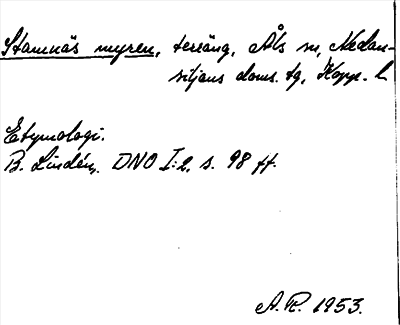 Stamnäs myren, teräng, Åls sn, Nedan-
siljans doms. tg, Kopp. l.
Etymologi.
B. Lindén, DNO I:2, s. 98 ff.
A.R. 1953.